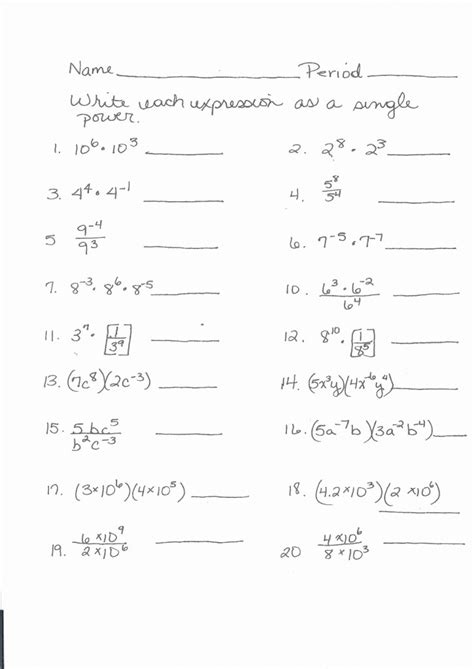 Name__________ Period__________
Write each expression as a single
power.
1. 10⁶ · 10³ ________ 2. 2⁸ · 2³ ________
3. 4⁴ · 4⁻¹ ________ 4. 5⁸/5⁴ ________
5 9⁻⁴/9³ ________ 6. 7⁻⁵ · 7⁻⁷ ________
7. 8⁻³ · 8⁶ · 8⁻⁵ ________ 10. 6³ · 6⁻²/6⁴ ________
11. 3⁷ · [1/3⁹] ________ 12. 8¹⁰ · [1/8⁵] ________
13. (7c⁸)(2c⁻³) ________ 14. (5x³y)(4x⁻⁶y⁴) ________
15. 5bc⁵/b²c⁻³ ________ 16. (5a⁻⁷b)(3a⁻²b⁻⁴) ________
17. (3×10⁶)(4×10⁵) ________ 18. (4.2×10³)(2×10⁶) ________
19. 6×10⁹/2×10⁶ ________ 20 4×10⁶/8×10³ ________